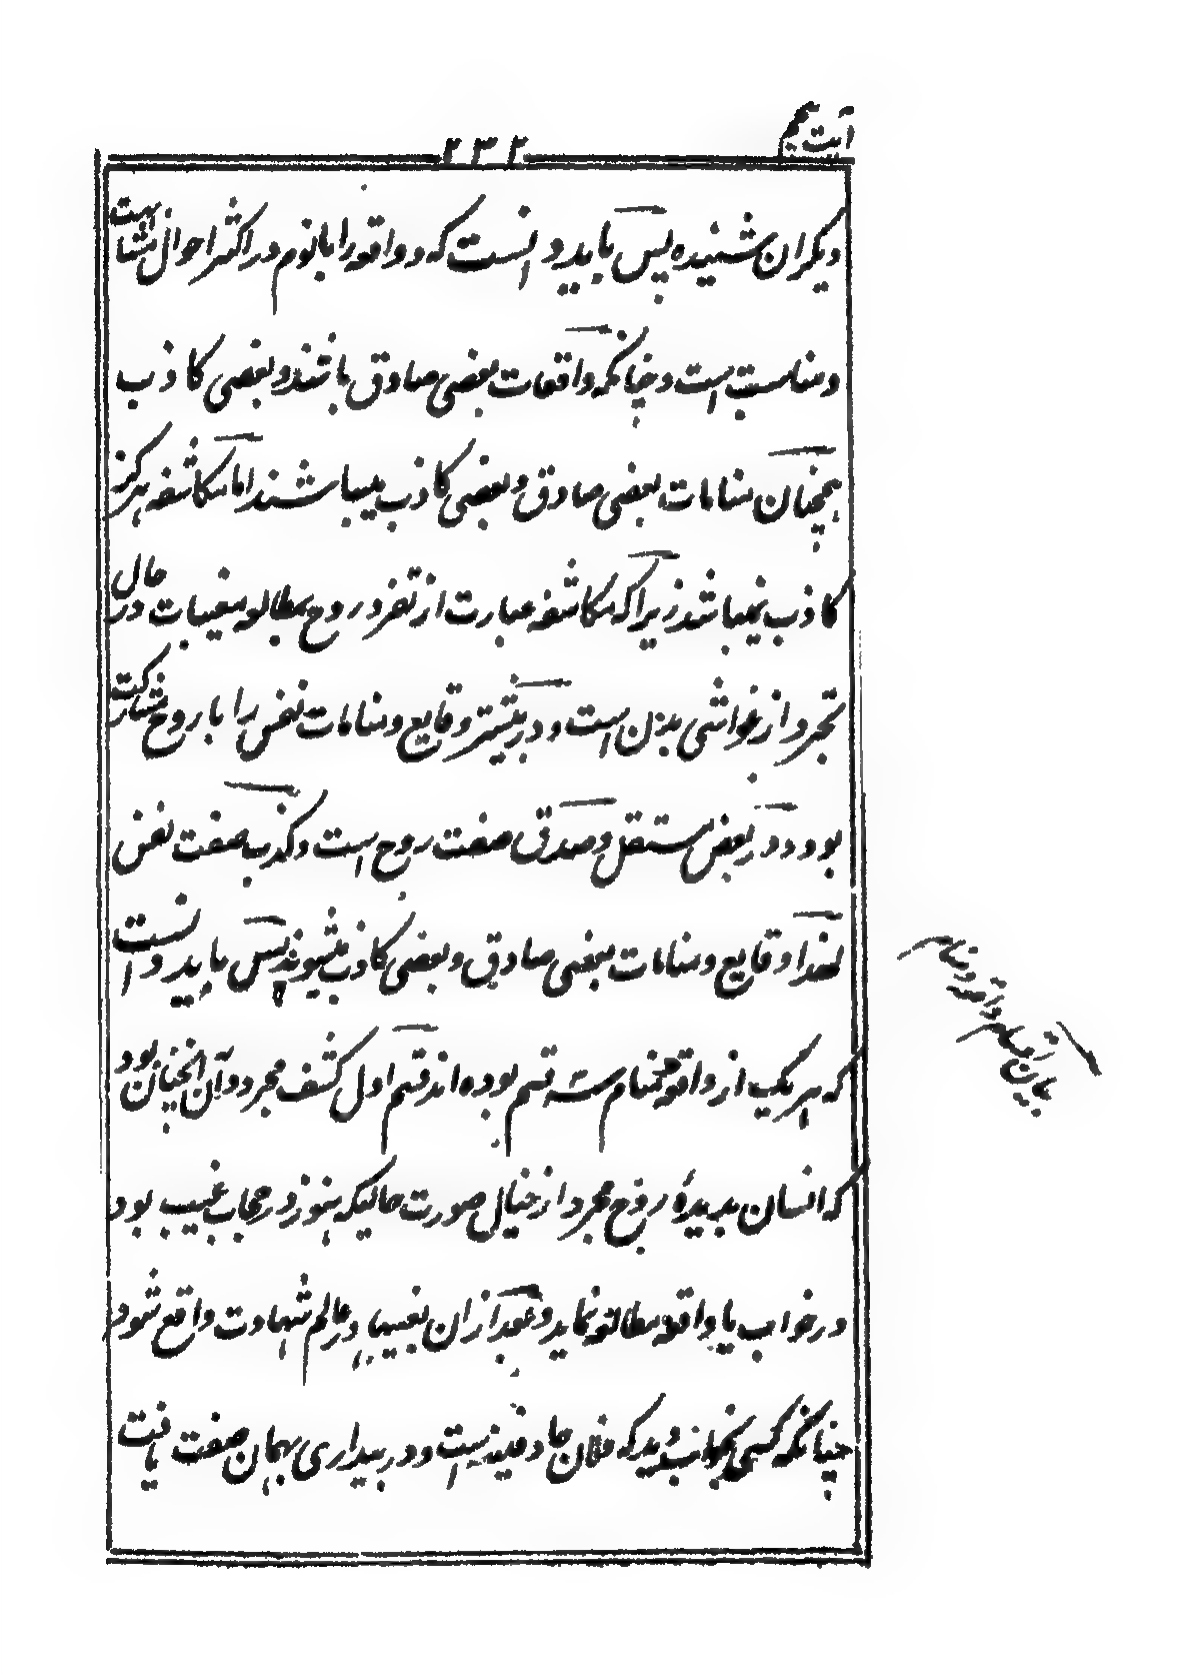 ۲۳۲
دیگران شنیده پس باید دانست که واقعه را با نوم در اکثر احوال مشابهت
و مناسبت است و چنانکه واقعات بعضی صادق باشند و بعضی کاذب
همچنان منامات بعضی صادق و بعضی کاذب میباشند اما مکاشفه هرگز
کاذب نمیباشد زیرا که مکاشفه عبارت از تفرد روح بمطالعه مغیبات در حال
تجرد از غواشی بدن است و در بیشتر وقایع و منامات نفس را با روح مشارکت
بود و در بعض مستقل و صدق صفت روح است و کذب صفت نفس
لهذا وقایع و منامات بعضی صادق و بعضی کاذب میشوند پس باید دانست
که هر یک از واقعه و منام سه قسم بوده اند قسم اول کشف مجرد و آن آنچنان بود
که انسان بدیدهٔ روح مجرد از خیال صورت حالیکه هنوز در حجاب غیب بود
در خواب یا واقعه مطالعه نماید و بعد از ان بعینها در عالم شهادت واقع شود
چنانکه کسی بخواب دید که فلان جا دفینه است و در بیداری بهمان صفت یافت
بیان اقسام واقعه و منام